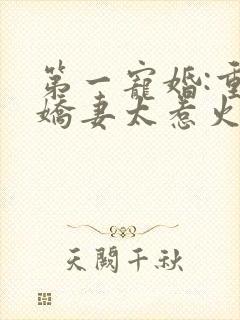 第一寵婚:重
嬌妻太惹火
天闕千秋